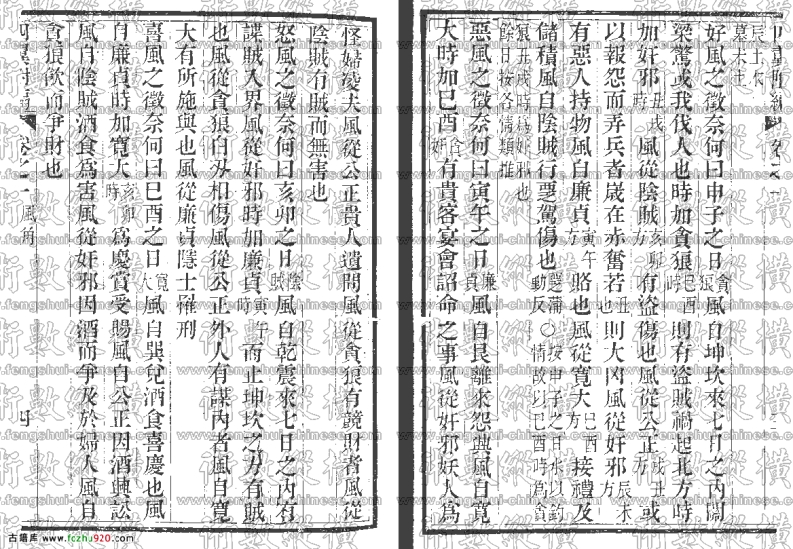 辰土木
墓未土
好風之徵奈何曰申子之日貪狼風自坤坎來七日之內鬬
梁驚或我伐人也時加貪狼時巳酉則有盜賊禍起北方時
加奸邪時丑戌風從陰賊方亥卯有盜傷也風從公正方戌丑或
以報怨而弄兵者歲在赤奮若丑也則大凶風從奸邪方辰未
有惡人持物風自廉貞方寅午賂也風從寬大方巳酉接禮及
儲積風自陰賊行惡駕傷也 ○按申子之日水以鈎
動反 情故以巳酉時為貪
狼丑戌時為奸邪也
餘日按各情類推
惡風之徵奈何曰寅午之日廉貞風自艮離來怨興風自寬
大時加巳酉貪奸有貴客宴會詔命之事風從奸邪妖人為
怪婦凌夫風從公正貴人遺問風從貪狼有競財者風從
陰賊有賊而無害也
怒風之徵奈何曰亥卯之日陰賊風自乾震來七日之內有
謀賊入界風從奸邪時加廉貞時寅午而止坤坎之方有賊
也風從貪狼白刃相傷風從公正外人有謀內者風自寬
大有所施與也風從廉貞隱士罹刑
喜風之徵奈何曰巳酉之日寬大風自巽兌酒食喜慶也風
自廉貞時加寬大時亥卯為慶賞受賜風自公正因酒興訟
風自陰賊酒食為害風從奸邪因酒而爭及於婦人風自
貪狼飲而爭財也
卷之一 風角
四
www.fengshui-chinese.com
術數縱橫
古籍库 - www.fczhu920.com